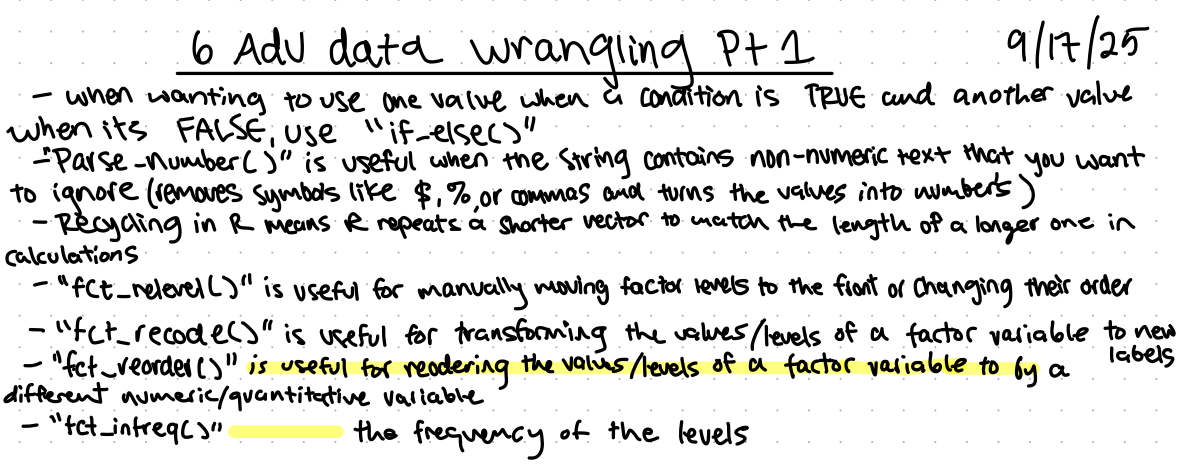 6 Adv data wrangling Pt 1 9/17/25
- when wanting to use one value when a condition is TRUE and another value
when its FALSE, use "if_else()"
- "Parse_number()" is useful when the string contains non-numeric text that you want
to ignore (removes symbols like $, %, or commas and turns the values into numbers)
- Recycling in R means R repeats a shorter vector to match the length of a longer one in
calculations
- "fct_relevel()" is useful for manually moving factor levels to the front or changing their order
- "fct_recode()" is useful for transforming the values/levels of a factor variable to new
labels
- "fct_reorder()" is useful for reodering the values/levels of a factor variable to by a
different numeric/quantitative variable
- "fct_infreq()" the frequency of the levels